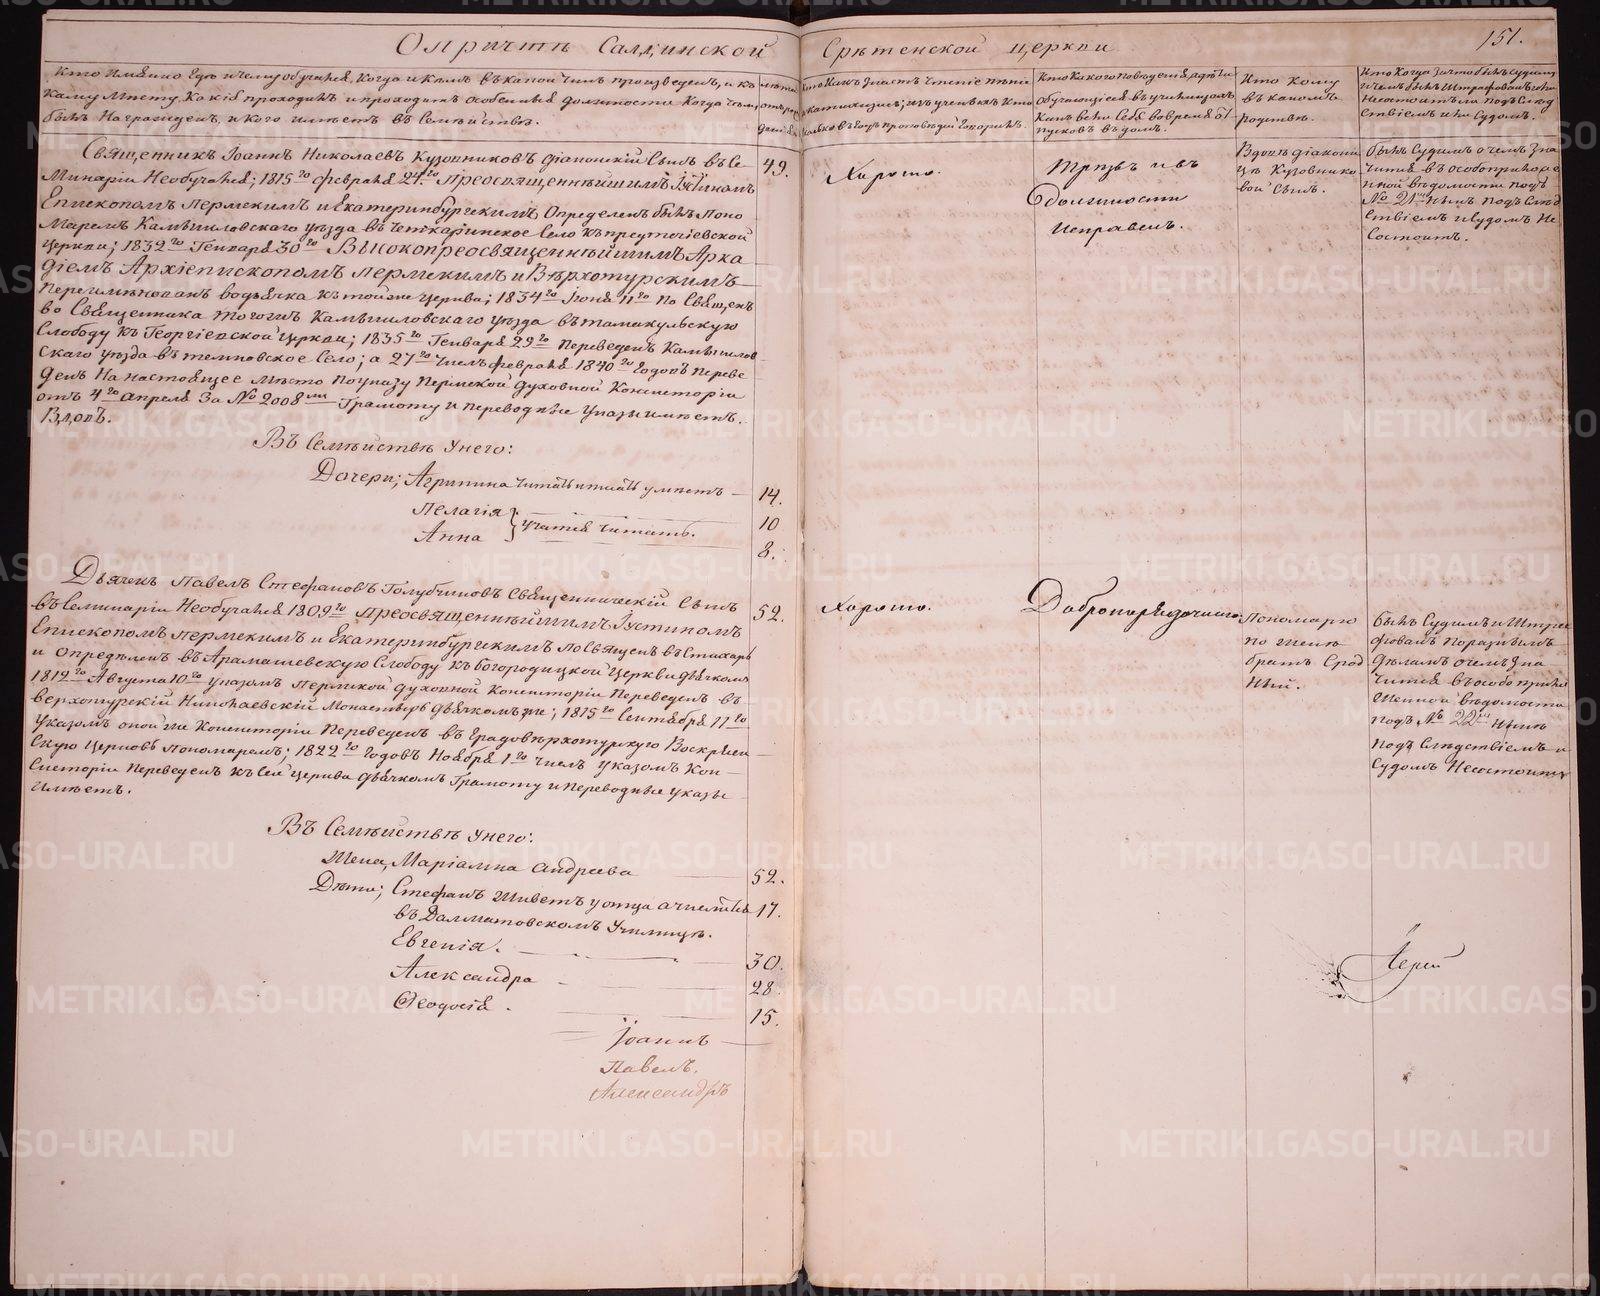 О причтѣ Салдинской Срѣтенской церкви
151.
Кто имянно гдѣ и чему обучался, когда и кѣмъ въ какой чинъ произведенъ, и къ
какому мѣсту. Какія проходилъ и проходитъ особенныя должности когда чѣмъ
былъ награжденъ, и кого имѣетъ въ семействѣ.
Кто кому
въ какомъ
родствѣ.
Священникъ Іоаннъ Николаевъ Кузовниковъ діаконскій сынъ въ се
минаріи необучался; 1815го февраля 24го Преосвященнѣйшимъ Іустиномъ
Епископомъ Пермскимъ и Екатеринбургскимъ опредѣленъ былъ поно
маремъ Камышловскаго уѣзда въ Четкаринское село къ предтечіевской
церкви; 1832го Генваря 30го Высокопреосвященнѣйшимъ Арка
діемъ Архіепископомъ Пермскимъ и Верхотурскимъ
переименованъ во дьячка къ той же церкви; 1834го Іюня 11го посвященъ
во Священника тогожъ Камышловскаго уѣзда въ Тамакульскую
слободу къ Георгіевской церкви; 1835го Генваря 29го переведенъ Камышлов
скаго уѣзда въ Темновское село; а 27го числъ февраля 1840го годовъ переве
денъ на настоящее мѣсто по указу Пермской духовной Консисторіи
отъ 4го апреля за № 2008мъ Грамоту и переводные указы имѣетъ.
Вдовъ.
49.
Хорошо.
Трезвъ и въ
должности
исправенъ.
Вдовѣ діакони
цѣ Кузовнико
вой сынъ.
былъ судимъ о чемъ зна
чится въ особоприложе
нной вѣдомости подъ
№ 21мъ нынѣ подъ слѣд
ствіемъ и судомъ не
состоитъ.
Въ семействѣ у него:
Дочери; Агрипина читать и писать умѣетъ — 14.
Пелагія } учатся читать. 10
Анна 8.
Дьячекъ Павелъ Стефановъ Голубчиковъ священническій сынъ
въ Семинаріи необучался 1809го Преосвященнѣйшимъ Іустиномъ
Епископомъ Пермскимъ и Екатеринбургскимъ посвященъ въ стихарь
и опредѣленъ въ Арамашевскую слободу къ богородицкой церкви дьячкомъ
1812го Августа 10го указомъ Пермской духовной Консисторіи переведенъ въ
верхотурскій Николаевскій монастырь дьячкомъ же; 1815го Сентября 11го
указомъ оной же Консисторіи переведенъ въ градоверхотурскую Воскресен
скую церковь пономаремъ; 1822го годовъ Ноября 1го числъ указомъ Кон
систоріи переведенъ къ сей церкви дьячкомъ Грамоту и переводные указы
имѣетъ.
52.
Хорошо.
Добропорядочнаго
Пономарю
по женѣ
братъ срод
ный.
былъ судимъ и штра
фованъ по разнымъ
дѣламъ о чемъ зна
чится въ особо прило
женной вѣдомости
подъ № 22мъ нынѣ
подъ слѣдствіемъ и
судомъ несостоитъ
Въ семействѣ у него:
Жена, Маріамна Андреева 52.
Дѣти; Стефанъ живетъ у отца а числится 17.
въ Далматовскомъ училищѣ.
Евгенія. 30.
Александра 28.
Феодосія. 15.
Іоаннъ
Павелъ.
Александръ
Іерей